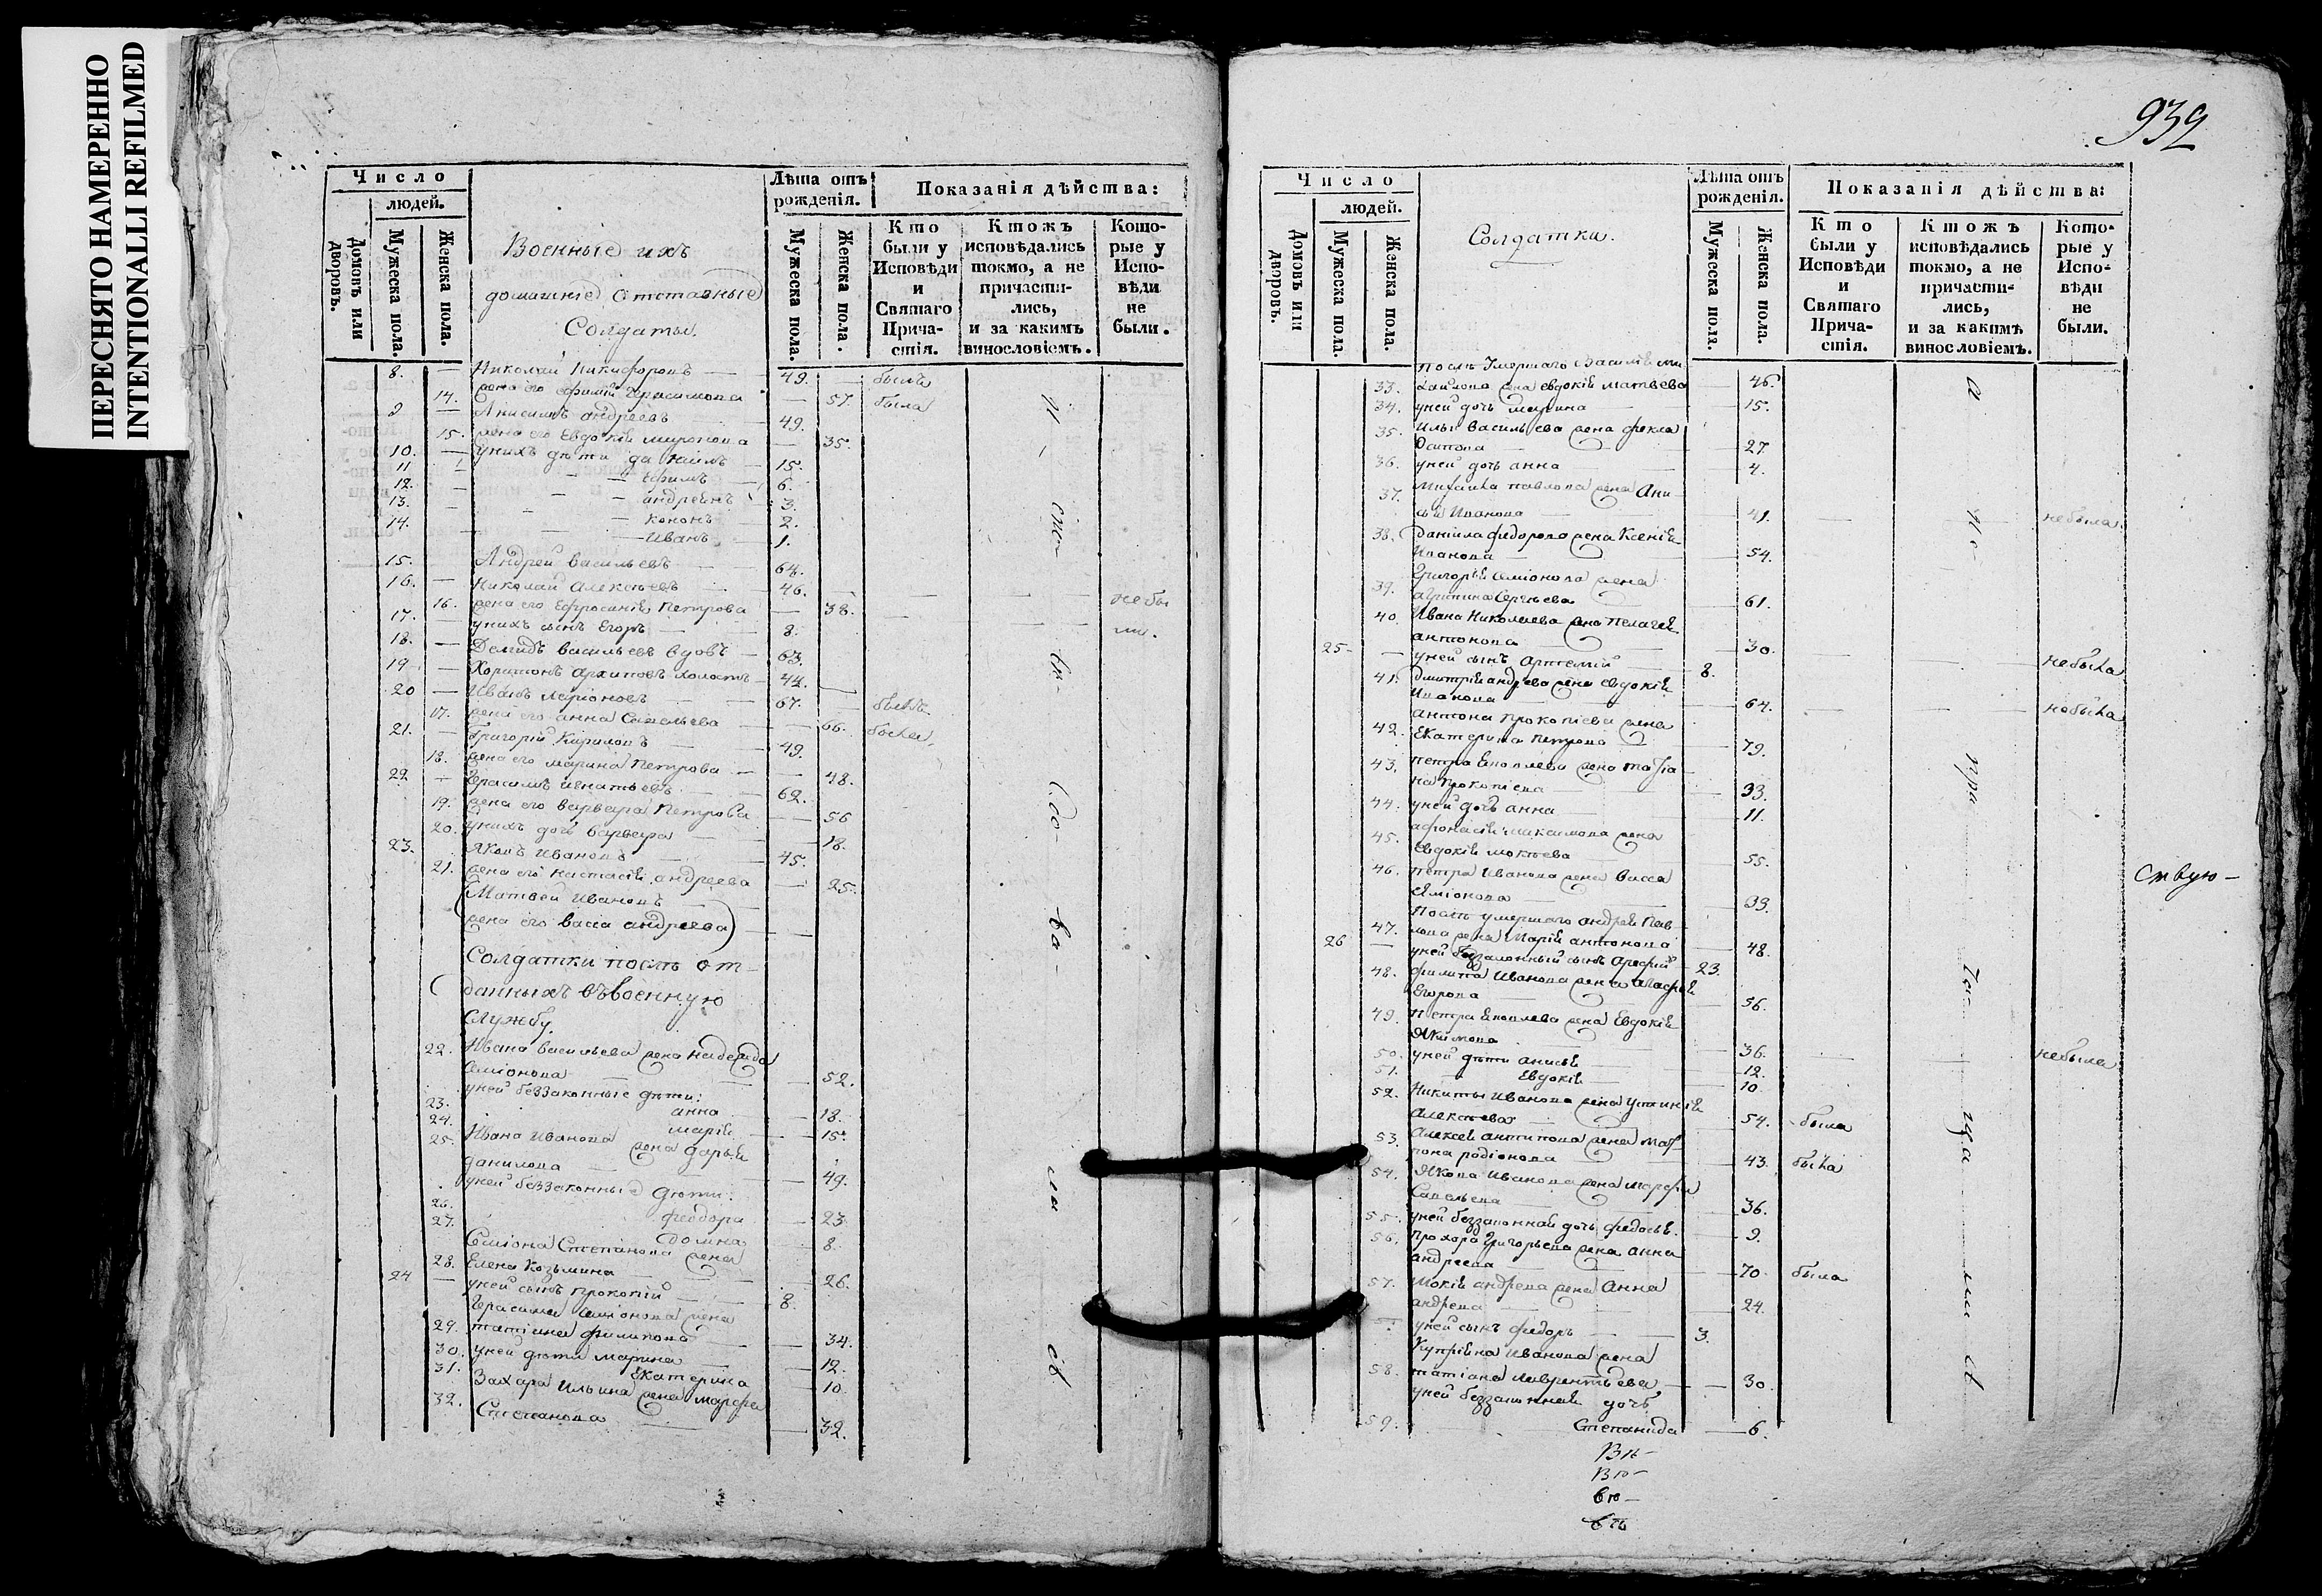 ПЕРЕСНЯТО НАМЕРЕННО
INTENTIONALLI REFILMED
Число
людей.
Домовъ или дворовъ.
Мужеска пола.
Женска пола.
Военные ихъ
домашние Отставные
Солдаты
Лѣта отъ рожденія.
Мужеска пола.
Женска пола.
Показанія дѣйства:
Кто были у Исповѣди и Святаго Прича-стія.
Ктожъ исповѣдались токмо, а не причасти-лись, и за какимъ винословіемъ.
Кото-рые у Испо-вѣди не были.
8. — Николай Никифоровъ — 49. — былъ
14. жена его Ефимія Герасимова — 57. была
9 — Анисимъ андреевъ — 49.
15. жена его Евдокія миронова — 35.
10. — унихъ дѣти данилъ — 15.
11 — Ефимъ — 6.
12. — андреянъ 3.
13. — кононъ 2.
14. — Иванъ — 1.
15. Андрей васильевъ — 64.
16. — Николай алексѣевъ — 46. — небы
16. жена его Ефросинія Петрова — 38.
17. — унихъ сынъ Егоръ — 8. — ли.
18. — Демидъ васильевъ вдовъ — 63.
19 — Харитонъ Архиповъ холостъ — 44.
20 — Иванъ Ларіоновъ — 67. — былъ
17. жена его анна Савельева — 66. была
21. — Григорій Кириловъ — 49.
18. жена его марина Петрова — 48.
22 — Герасимъ игнатьевъ — 62.
19. жена его варвара Петрова — 56
20. унихъ дочь варвара — 18.
23. Яковъ Ивановъ — 45.
21. жена его настасія андреева — 25.
(Матвей Ивановъ —
жена его васса андреева) —
Солдатки послѣ от-
данныхъ въвоенную
службу.
22. Ивана васильева жена надежда
Симіонова — 52.
уней беззаконные дѣти:
23. анна — 18.
24. марія — 15.
25. Ивана Иванова жена дарья
данилова — 49.
уней беззаконные дѣти:
26. феодора — 23
27. домна — 8.
Симіона Степанова жена
28. Елена Козьмина — 26.
24 — уней сынъ прокопій — 8.
Герасима Симіонова жена
29. татіана филипова — 34.
30. уней дѣти марина — 12.
31. Екатерина — 10.
Захара Ильина жена марфа
32. Степанова — 32.
И-
сто-
вы-
вдо-
ва-
ли
сь
932
Число
людей.
Домовъ или дворовъ.
Мужеска пола.
Женска пола.
Солдатки.
Лѣта отъ рожденія.
Мужеска пола.
Женска пола.
Показанія дѣйства:
Кто были у Исповѣди и Святаго Прича-стія.
Ктожъ исповѣдались токмо, а не причасти-лись, и за какимъ винословіемъ.
Кото-рые у Испо-вѣди не были.
послѣ Умершаго Василія ми-
33. хайлова жена евдокія матвѣева — 46.
34. уней дочь марина — 15.
35. Ильи васильева жена фекла
Осипова — 27.
36. уней дочь анна — 4.
37. Михаила павлова жена Ани-
сья Иванова — 41. — небыла
38. даниила федорова жена Ксенія
Иванова — 54.
Григорія Симіонова жена
39. агрипина Сергѣева — 61.
40. Ивана Николаева жена пелагея
антонова — 30.
25 — уней сынъ Артемій — 8. — небыла
41. дмитрія андрѣева жена евдокія
Иванова — 64. — небыла
антона прокопіева жена
42. Екатерина петрова — 79.
43. петра Яковлева жена татіа-
на прокопіева — 33.
44. уней дочь анна — 11.
афонасія максимова жена
45. Евдокія мокѣева — 55.
46. петра Иванова жена васса
Симіонова — 39.
Послѣ умершаго андрея пав-
47. лова жена Марія антонова — 48.
26 — уней беззаконный сынъ Арефій — 23.
48. филипа Иванова жена
Егорова — 56.
49. Петра Яковлева жена Евдокія
Якимова — 36. — небыла
50. уней дѣти анисья — 12.
51. Евдокія — 10.
52. Никиты Иванова жена устинія
Алексѣева — 54. была
53. Алексѣя антипова жена мат-
рона родіонова — 43. была
54. Якова Иванова жена марфа
Савельева — 36.
55. уней беззаконная дочь федосья — 9.
56. прохора Григорьева жена анна
андреева — 70. была
57. Мокія андреева жена Анна
андреева — 24.
уней сынъ федоръ — 3.
Купріяна Иванова жена
58. татіана лаврентьева — 30.
уней беззаконная дочь
59. Степанида — 6.
а
не-
при
ча-
ща
ли
сь
ствую-